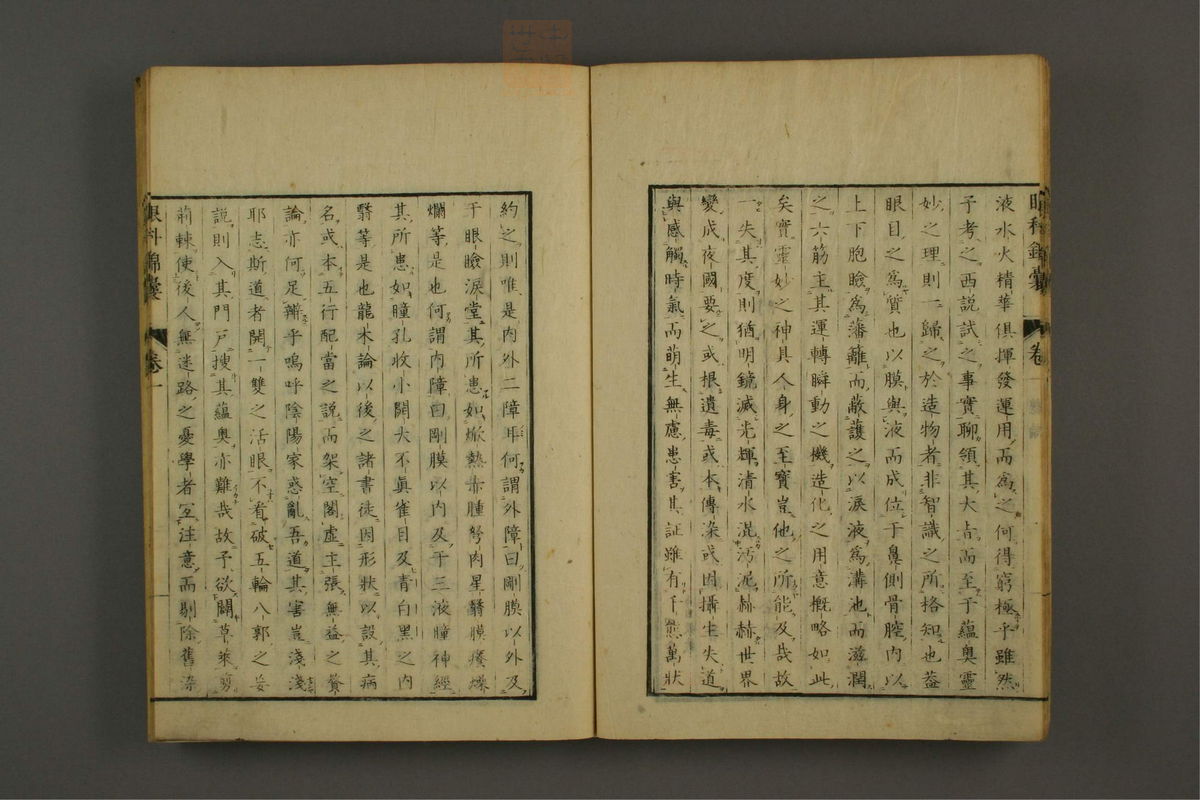 眼科錦囊 卷一
液水火精華俱揮發運用而為之何得窮極乎雖然
予考之西說試之事實聊領其大旨而至于蘊奧靈
妙之理則一歸之於造物者非智識之所格知也蓋
眼目之為質也以膜與液而成位于鼻側骨腔內以
上下胞瞼為藩籬而蔽護之以淚液為溝池而滋潤
之六筋主其運轉瞬動之機造化之用意概略如此
矣實靈妙之神具人身之至寶豈他之所能及哉故
一失其度則猶明鏡滅光輝清水混汚泥赫赫世界
變成夜國要之或根遺毒或本傳染或因攝生失道
與感觸時氣而萌生無慮患害其証雖有千態萬狀
約之則唯是內外二障耳何謂外障曰剛膜以外及
于眼瞼淚堂其所患如焮熱赤腫胬肉星翳膜瘻爛
爛等是也何謂內障曰剛膜以內及于三液瞳神經
其所患如瞳孔收小開大不真雀目及青白黑之內
翳等是也龍木論以後之諸書徒因形狀以設其病
名或本五行配當之說而架空閣虛主張無益之贅
論亦何足辨乎嗚呼陰陽家惑亂吾道其害豈淺淺
耶志斯道者開一雙之活眼不看破五輪八郭之妄
說則入其門戶搜其蘊奧亦難哉故予欲闢草萊剪
荊棘使後人無迷路之憂學者宜注意而剔除舊染
眼科錦囊 卷一